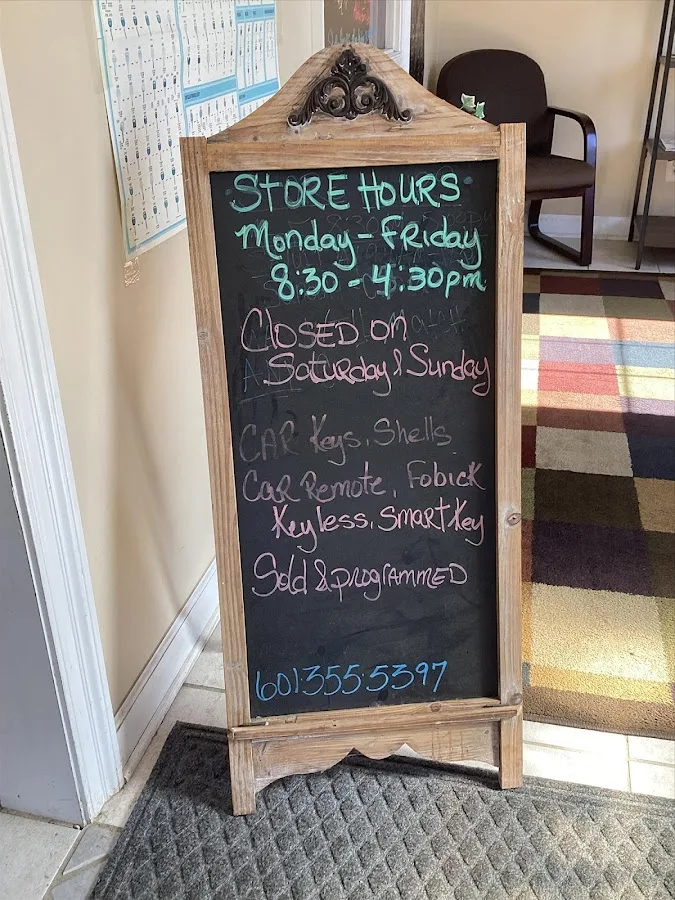 STORE HOURS
Monday - Friday
8:30 - 4:30pm
CLOSED on
Saturday & Sunday
CAR Keys, Shells
Car Remote, Fobick
Keyless, Smart Key
Sold & programmed
601.355.5397